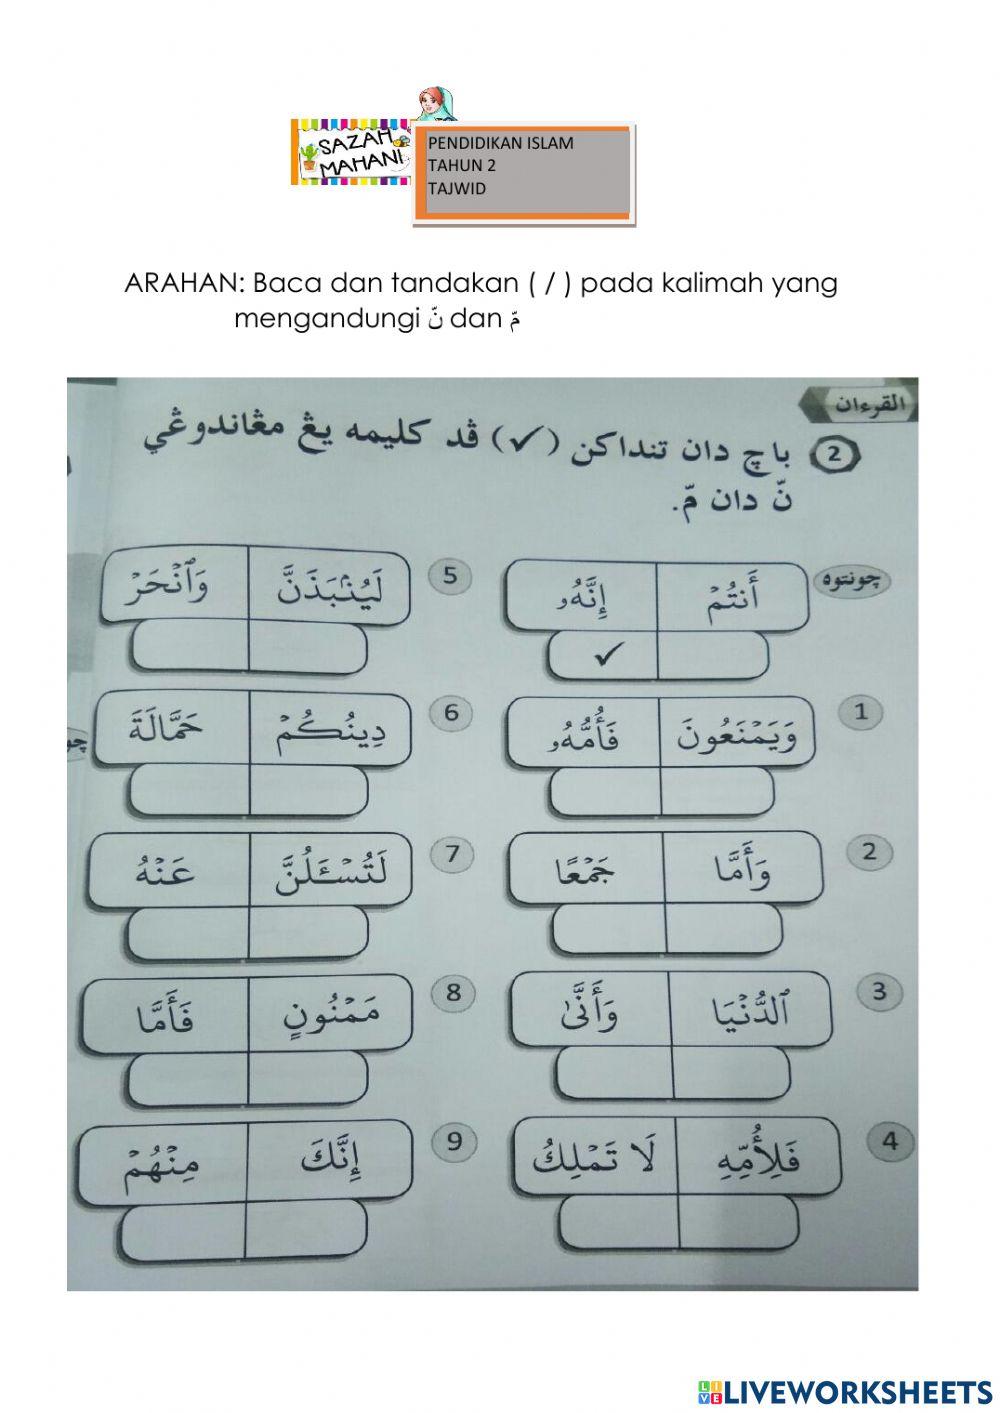 SAZAH
MAHANI
PENDIDIKAN ISLAM
TAHUN 2
TAJWID
ARAHAN: Baca dan tandakan ( / ) pada kalimah yang
mengandungi نّ dan مّ
القرءان
2 باچ دان تنداكن (✓) ڤد كليمه يڠ مڠاندوڠي
نّ دان مّ.
چونتوه
أَنتُمْ إِنَّهُۥ
✓
1
وَيَمْنَعُونَ فَأُمُّهُۥ
2
وَأَمَّا جَمْعًا
3
ٱلدُّنْيَا وَأَنَّىٰ
4
فَلِأُمِّهِ لَا تَمْلِكُ
5
لَيُنۢبَذَنَّ وَٱنْحَرْ
6
دِينُكُمْ حَمَّالَةَ
7
لَتُسْـَٔلُنَّ عَنْهُ
8
مَمْنُونٍ فَأَمَّا
9
إِنَّكَ مِنْهُمْ
LIVEWORKSHEETS